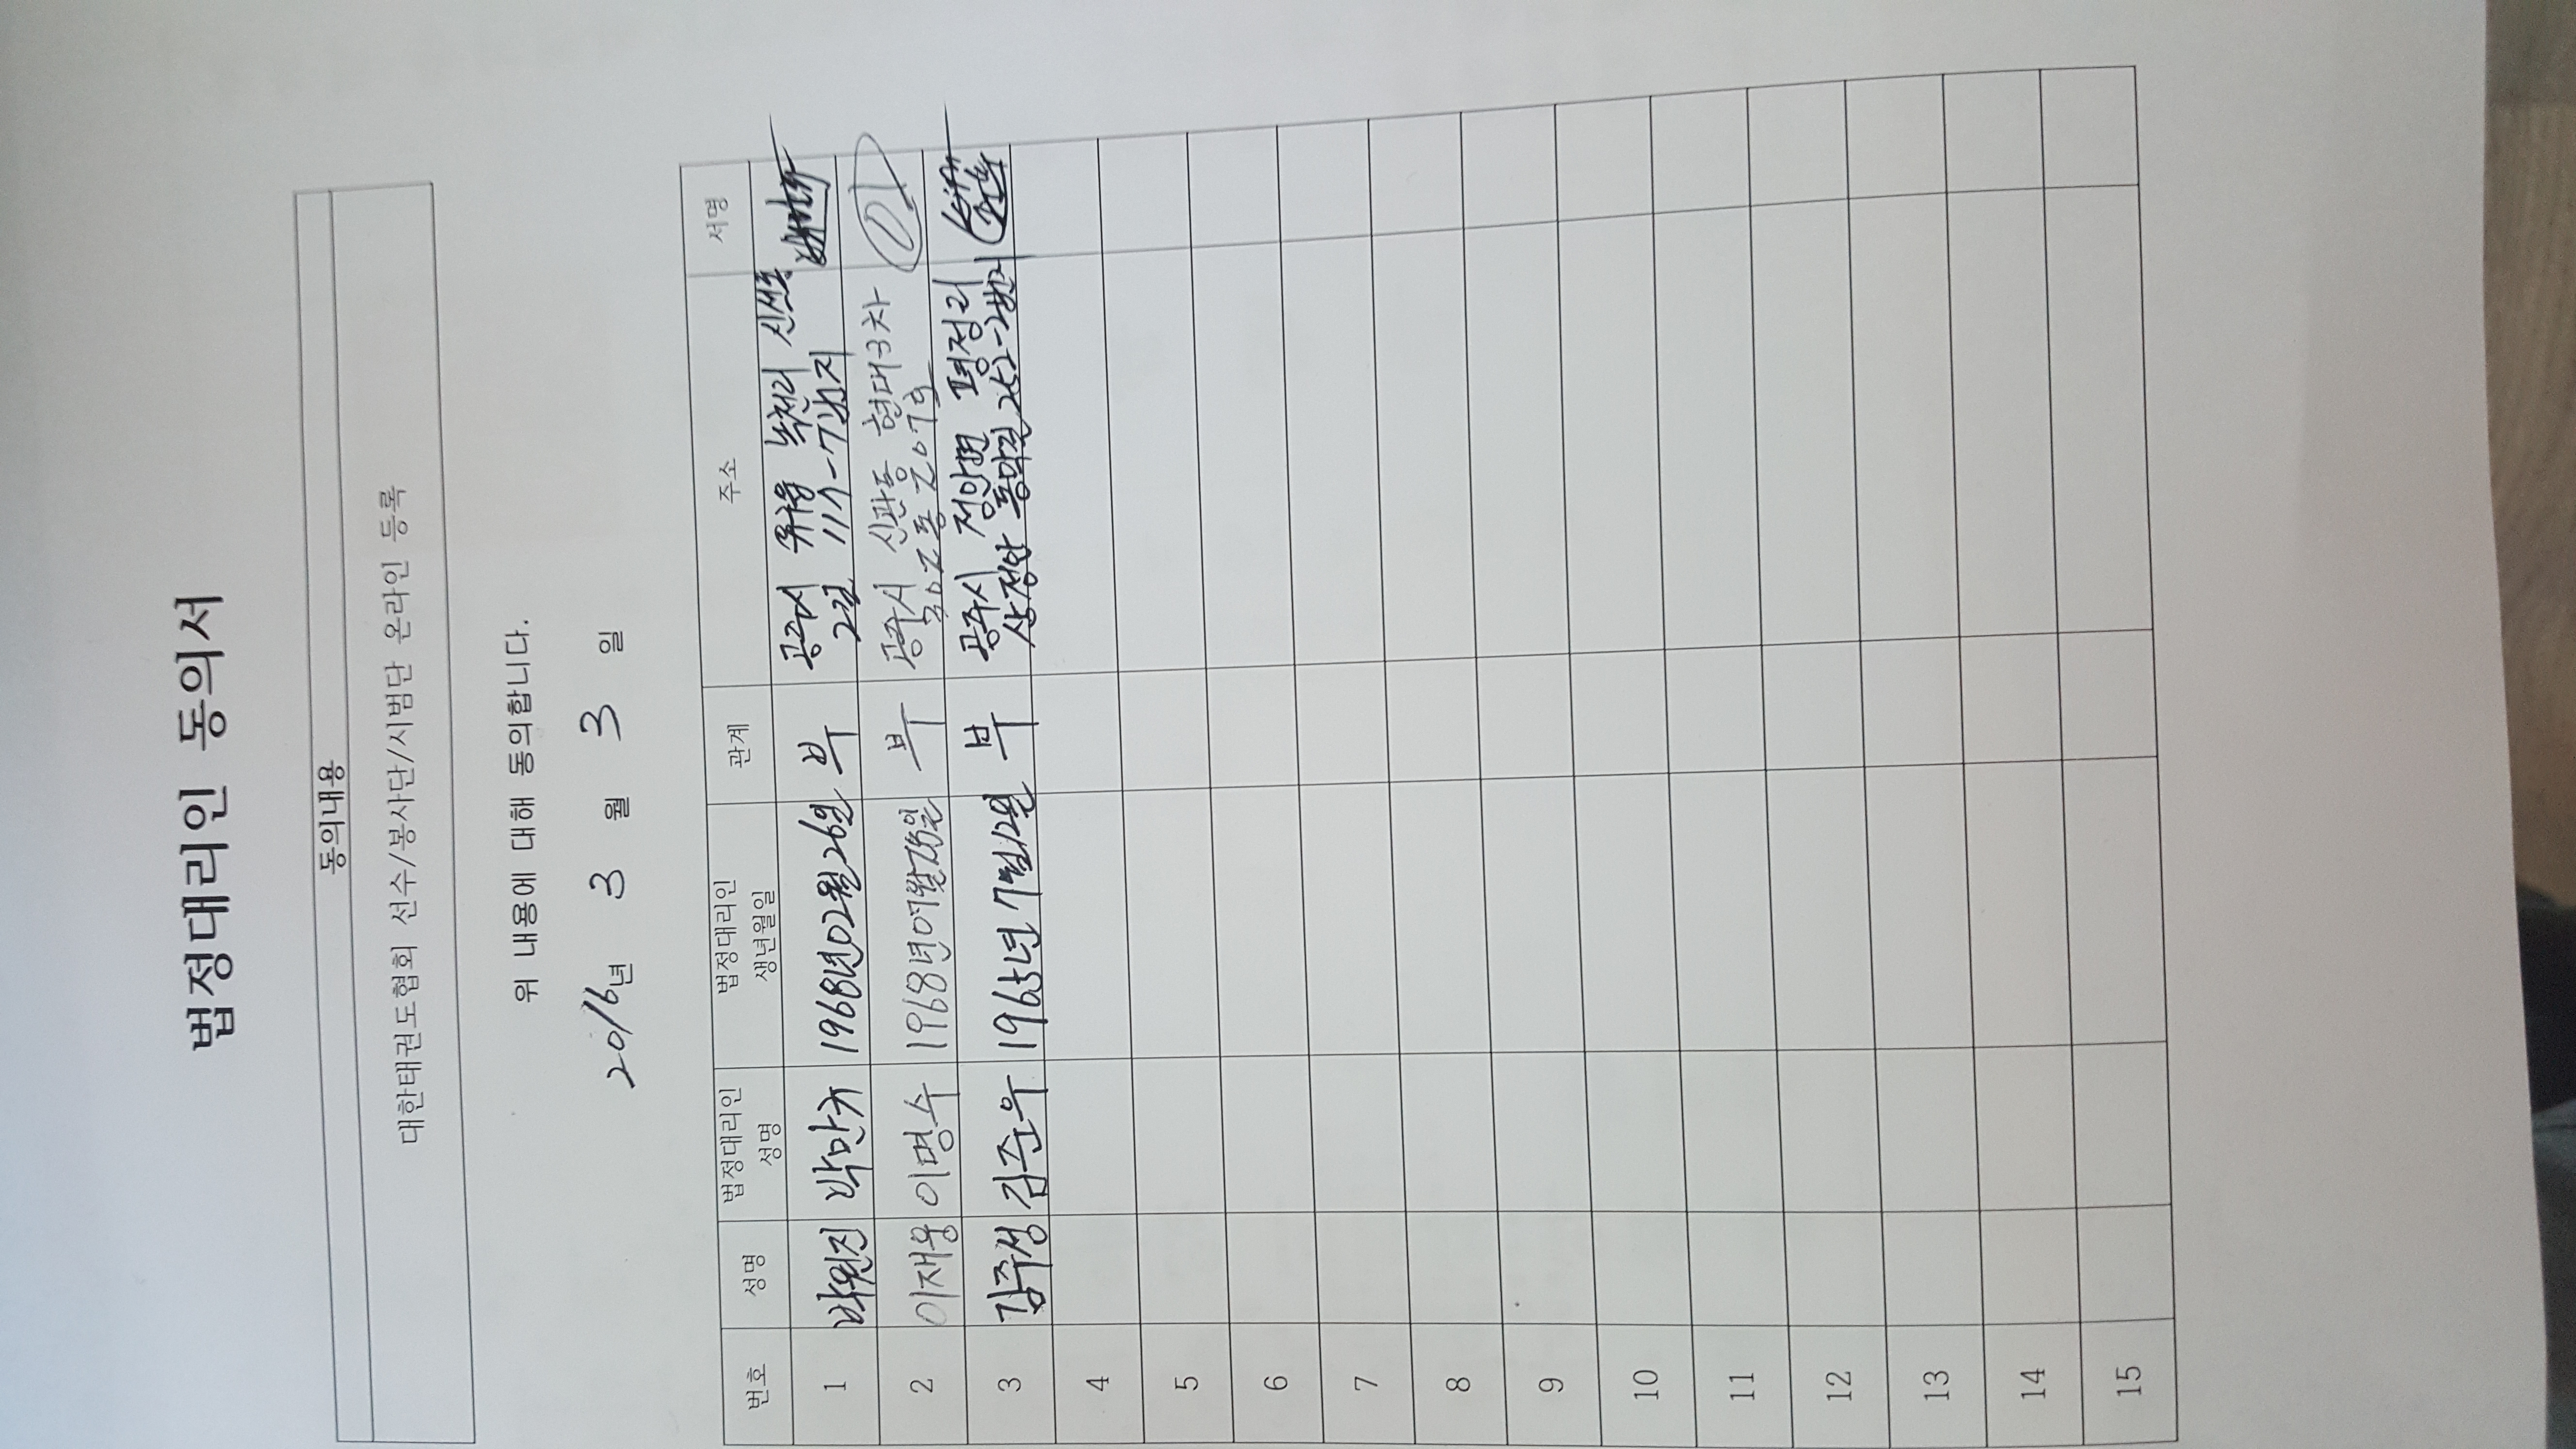 법정대리인 동의서
동의내용
대한태권도협회 선수/봉사단/시범단 온라인 등록
위 내용에 대해 동의합니다.
2016년 3 월 3 일
번호 성명 법정대리인 성명 법정대리인 생년월일 관계 주소 서명
1 박원진 박만규 1968년02월26일 부 공주시 유구읍 녹천리
2길 111-7번지
2 이재웅 이명수 1968년07월25일 부 공주시 신관동 현대3차
302동 207호
3 김주성 김준우 1965년 7월12일 부 공주시 정안면 평정리
상정안 동막길 252-2번지
4
5
6
7
8
9
10
11
12
13
14
15